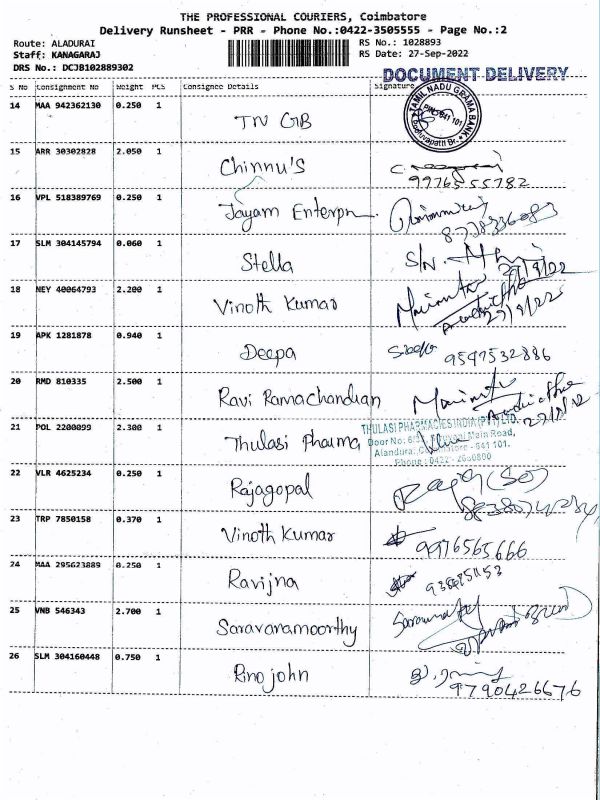 THE PROFESSIONAL COURIERS, Coimbatore
Delivery Runsheet - PRR - Phone No.:0422-3505555 - Page No.:2
Route: ALADURAI
Staff: KANAGARAJ
DRS No.: DCJB102889302
RS No.: 1028893
RS Date: 27-Sep-2022
DOCUMENT DELIVERY
S No Consignment No Weight PCS Consignee Details Signature
14 MAA 942362130 0.250 1 TN GB
TAMIL NADU GRAMA BANK
PIN-641 101
15 ARR 30302828 2.050 1 Chinnu's
9976555782
16 VPL 518389769 0.250 1 Jayam Enterpr
17 SLM 304145794 0.060 1 Stella S/N.
27/9/22
18 NEY 40064793 2.200 1 Vinoth Kumar
27/9/22
19 APK 1281878 0.940 1 Deepa
9597532886
20 RMD 810335 2.500 1 Ravi Ramachandran
21 POL 2200099 2.300 1 Thulasi Pharma
THULASI PHARMACIES INDIA (PVT) LTD.
Door No: Main Road,
Alandurai, Coimbatore - 641 101.
Phone : 0422 -
22 VLR 4625234 0.250 1 Rajagopal
23 TRP 7850158 0.370 1 Vinoth Kumar
9976565666
24 MAA 295623889 0.250 1 Ravijna
25 VNB 546343 2.700 1 Saravanamoorthy
26 SLM 304160448 0.750 1 Rino john
9790426676